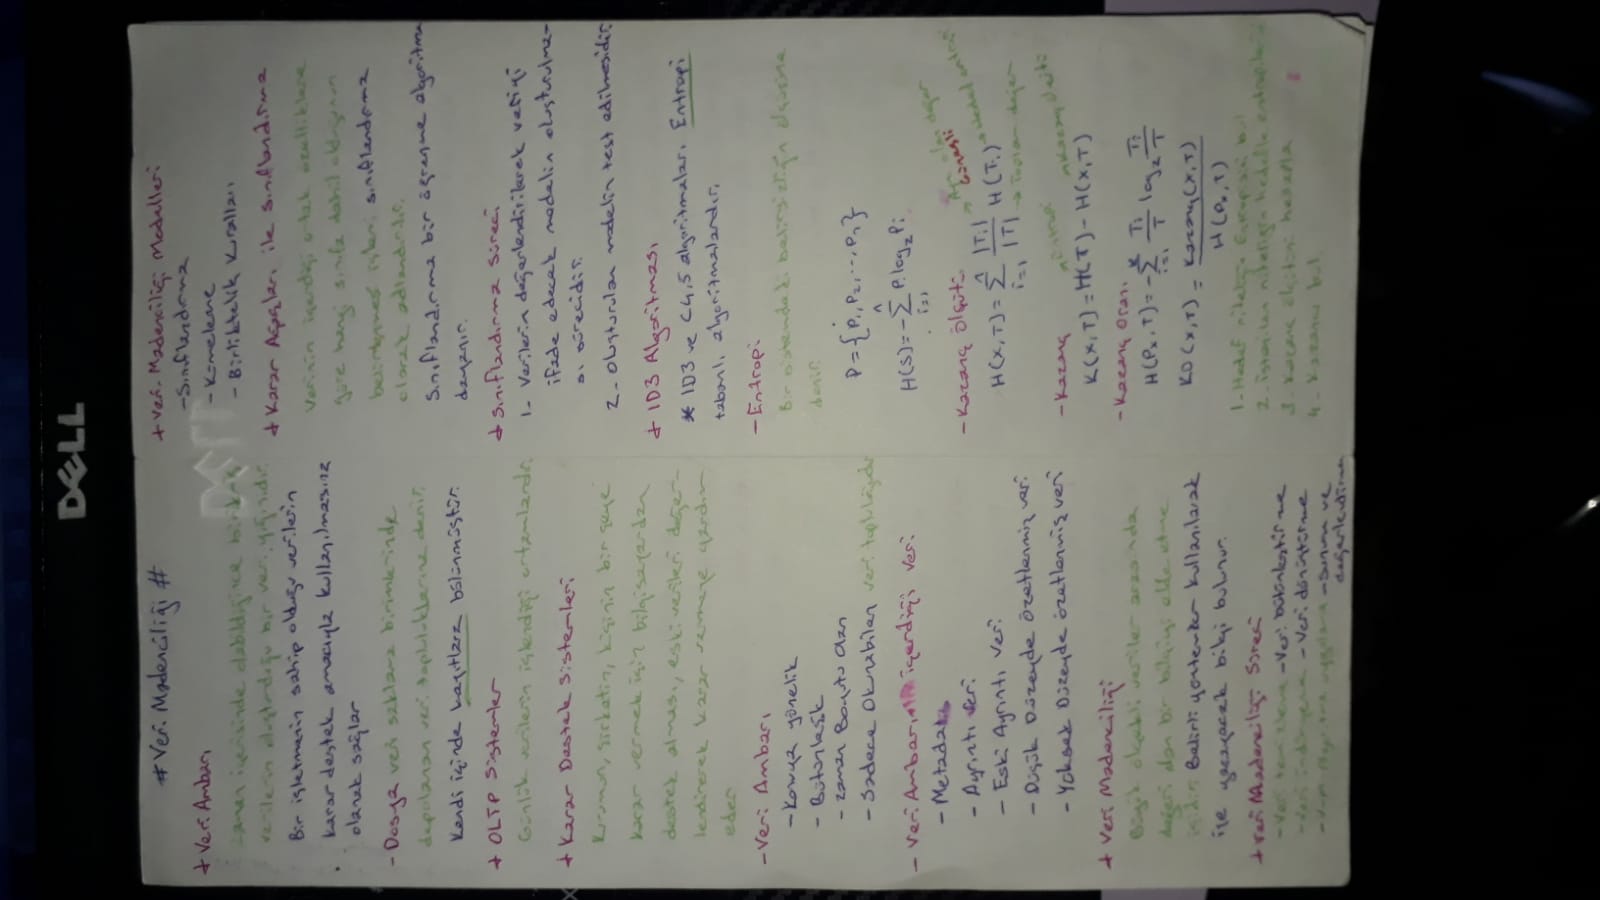 DELL
# Veri Madenciliği #
+ Veri Ambarı
Zaman içerisinde olabildiğince birikmiş
verilerin oluşturduğu bir veri yığınıdır.
Bir işletmenin sahip olduğu verilerin
karar destek amacıyla kullanılmasına
olanak sağlar
- Dosya veri saklama birimlerinde
depolanan veri topluluklarına denir.
Kendi içinde kayıtlara bölünmüştür.
+ OLTP Sistemler
Günlük verilerin işlendiği ortamlardır.
+ Karar Destek Sistemleri
Kurumun, şirketin, kişinin bir şeye
karar vermek için bilgisayardan
destek alması, eski verileri değer-
lendirerek karar vermeye yardım
eder
- Veri Ambarı
- Konuya yönelik
- Bütünleşik
- Zaman Boyutu olan
- Sadece Okunabilen veri topluluğudur
- Veri Ambarı içerdiği veri
- Metadata
- Ayrıntı veri
- Eski Ayrıntı Veri
- Düşük Düzeyde özetlenmiş veri
- Yüksek Düzeyde özetlenmiş veri
+ Veri Madenciliği
Büyük ölçekli veriler arasında
değeri olan bir bilgiyi elde etme
işidir. Belirli yöntemler kullanılarak
işe yarayacak bilgi bulunur.
+ Veri Madenciliği Süreci
- Veri temizleme - Veri bütünleştirme
- Veri indirgeme - Veri dönüştürme
uygulama - Sunum ve
değerlendirme
+ Veri Madenciliği Modelleri
- Sınıflandırma
- Kümeleme
- Birliktelik Kuralları
+ Karar Ağaçları ile sınıflandırma
Verinin içerdiği ortak özelliklere
göre hangi sınıfa dahil olduğunun
belirlenmesi işlemi sınıflandırma
olarak adlandırılır.
Sınıflandırma bir öğrenme algoritma
dayanır.
+ Sınıflandırma Süreci
1- Verilerin değerlendirilerek veriyi
ifade edecek modelin oluşturulma-
sı sürecidir.
2- Oluşturulan modelin test edilmesidir.
+ ID3 Algoritması
* ID3 ve C4,5 algoritmaları Entropi
tabanlı algoritmalardır.
- Entropi
Bir sistemdeki belirsizliğin ölçüsüne
denir.
P = {P1, P2, ..., Pn}
H(S) = -∑ⁿᵢ₌₁ Pi log₂ Pi
- Kazanç Ölçütü → Aynı olan değer
H(X,T) = ∑ⁿᵢ₌₁ |Ti|/|T| H(Ti) → Hedef entropi
→ Toplam değer
- Kazanç → Kazanç ölçütü
K(X,T) = H(T) - H(X,T)
- Kazanç Oranı
H(Px,T) = -∑ᵏᵢ₌₁ Ti/T log₂ Ti/T
KO(X,T) = Kazanç(X,T) / H(Px,T)
1- Hedef niteliğin Entropisini bul
2- İstenilen niteliğin hedefle entropilerini
3- Kazanç ölçütünü hesapla
4- Kazancı bul